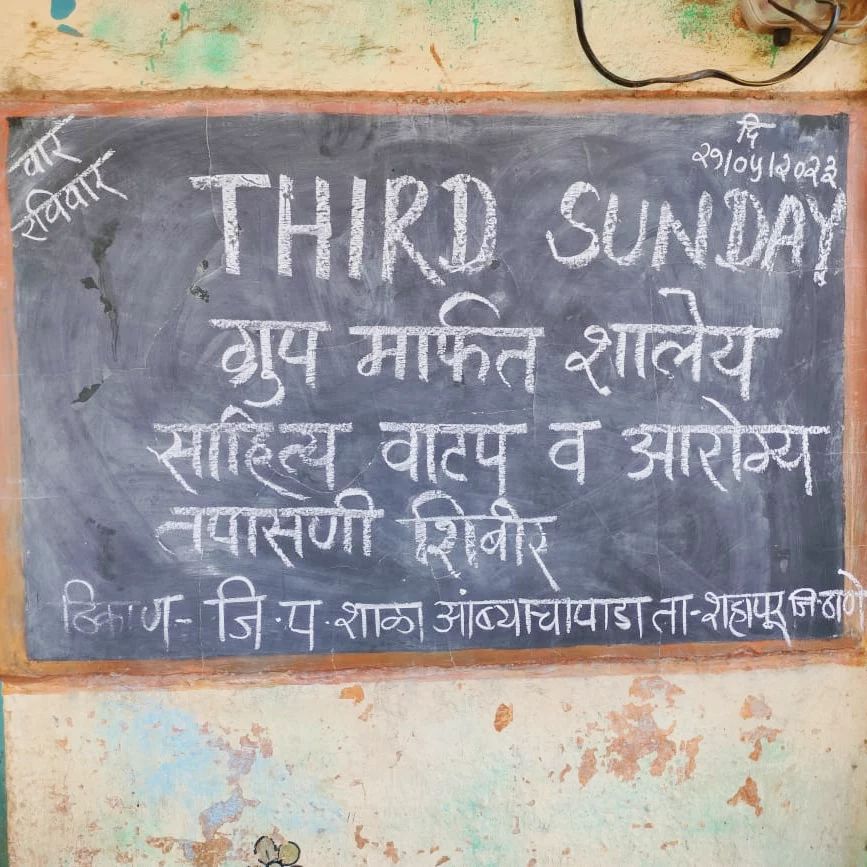 वार
रविवार
दि
२१/०५/२०२३
THIRD SUNDAY
ग्रुप मार्फत शालेय
साहित्य वाटप व आरोग्य
तपासणी शिबीर
ठिकाण- जि.प. शाळा आंब्याचापाडा ता-शहापूर जि-ठाणे